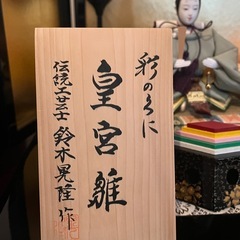 彩のくに
皇宮雛
伝統工芸士 鈴木晃隆 作